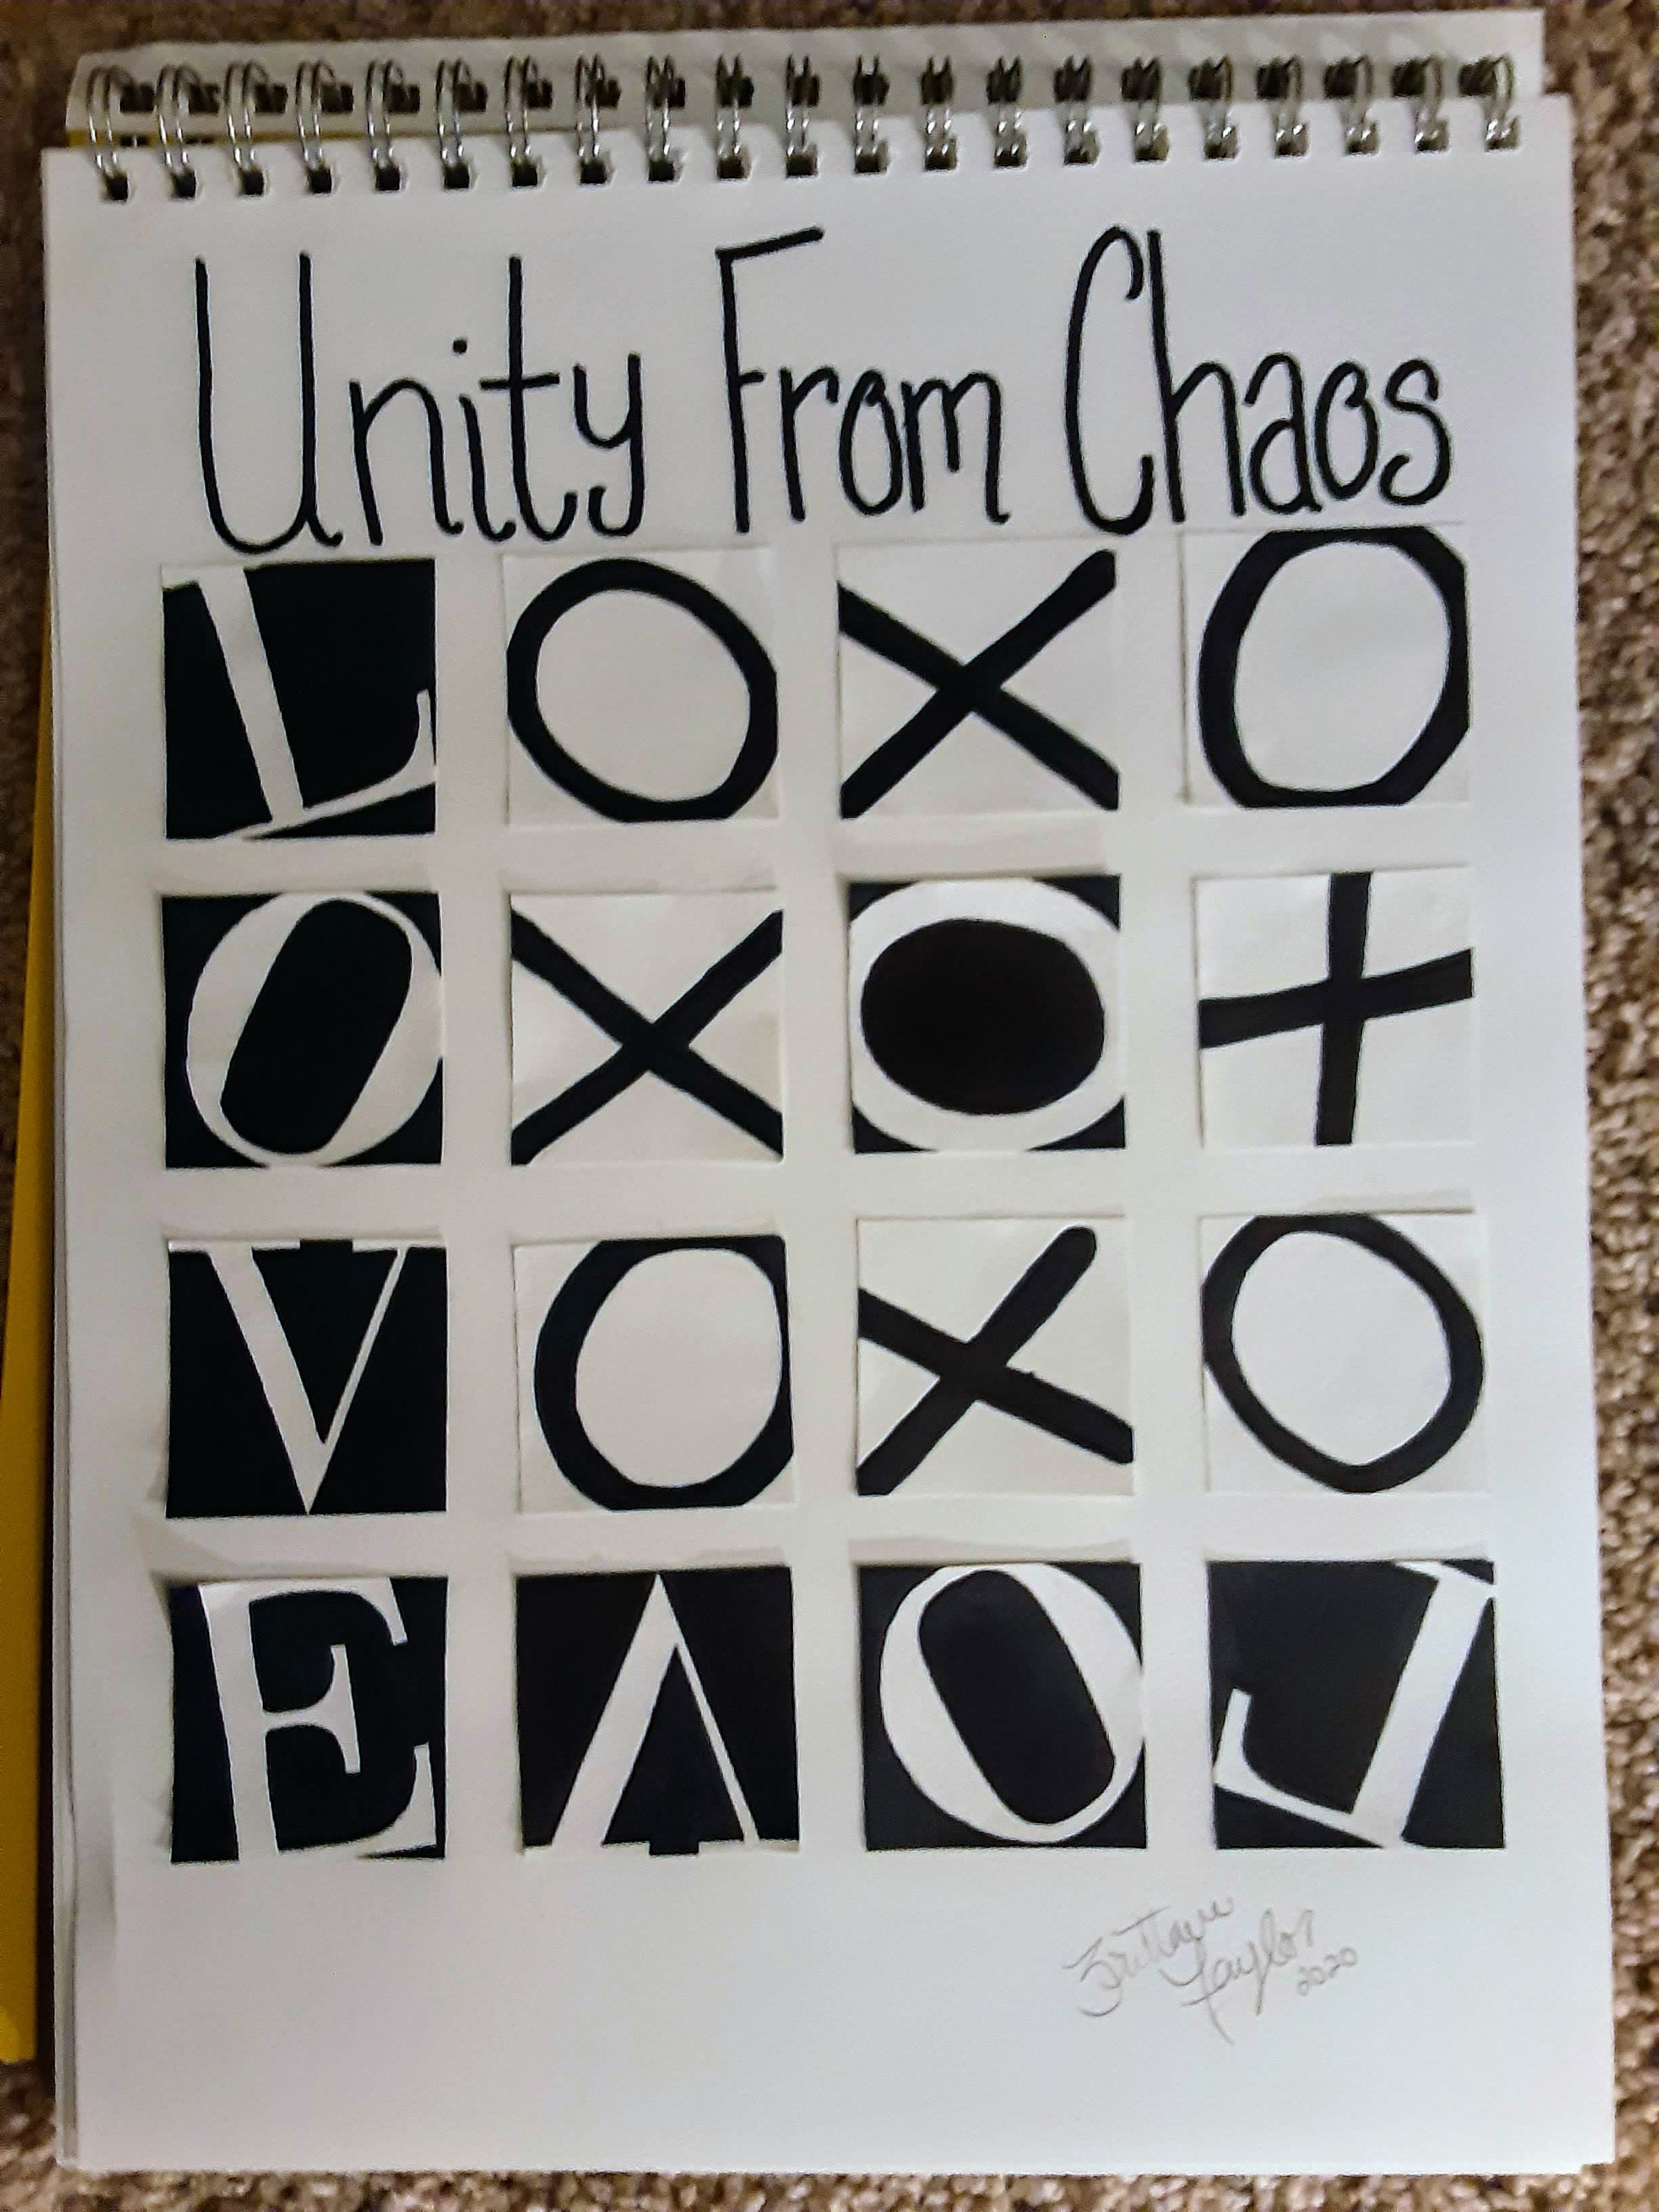 Unity From Chaos
L O X O
O X O X
V O X O
E V O L
Brittany
Taylor
2020